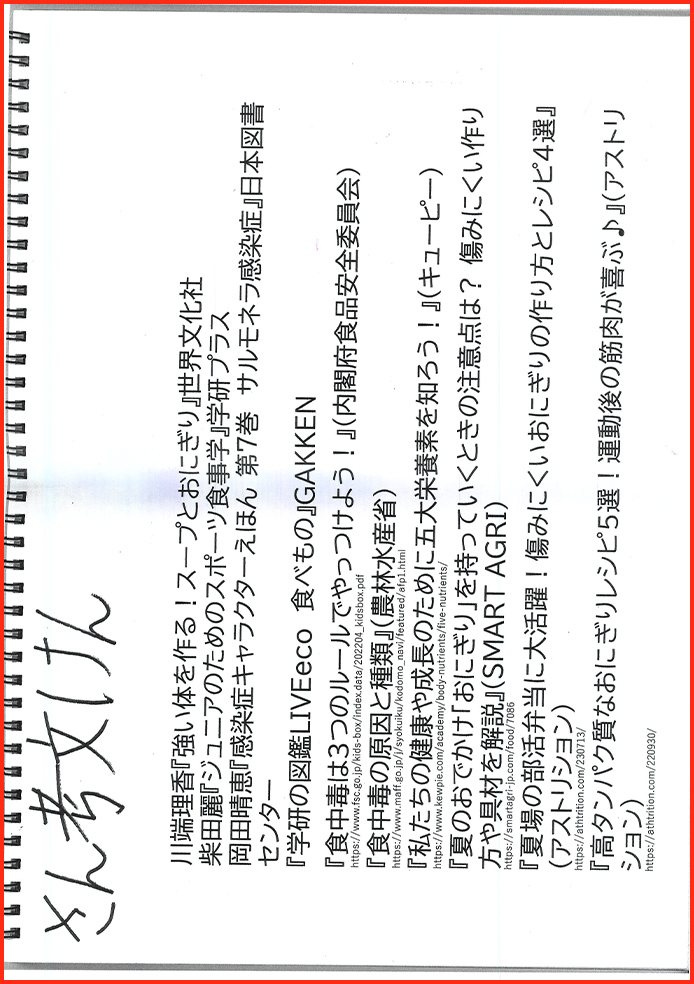 さん考文けん
川端理香『強い体を作る！スープとおにぎり』世界文化社
柴田麗『ジュニアのためのスポーツ食事学』学研プラス
岡田晴恵『感染症キャラクターえほん 第7巻　サルモネラ感染症』日本図書
センター
『学研の図鑑LIVEeco 食べもの』GAKKEN
『食中毒は3つのルールでやっつけよう！』(内閣府食品安全委員会)
https://www.fsc.go.jp/kids-box/index.data/202204_kidsbox.pdf
『食中毒の原因と種類』(農林水産省)
https://www.maff.go.jp/j/syokuiku/kodomo_navi/featured/afp1.html
『私たちの健康や成長のために五大栄養素を知ろう！』(キューピー)
https://www.kewpie.com/academy/body-nutrients/five-nutrients/
『夏のおでかけ「おにぎり」を持っていくときの注意点は？ 傷みにくい作り
方や具材を解説』(SMART AGRI)
https://smartagri-jp.com/food/7086
『夏場の部活弁当に大活躍！傷みにくいおにぎりの作り方とレシピ4選』
(アストリション)
https://athtrition.com/230713/
『高タンパク質なおにぎりレシピ5選！運動後の筋肉が喜ぶ♪』(アストリ
ション)
https://athtrition.com/220930/